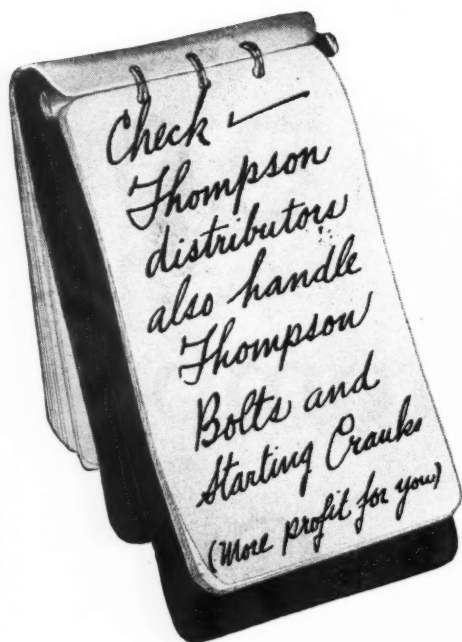 Check —
Thompson
distributors
also handle
Thompson
Bolts and
Starting Cranks
(More profit for you)